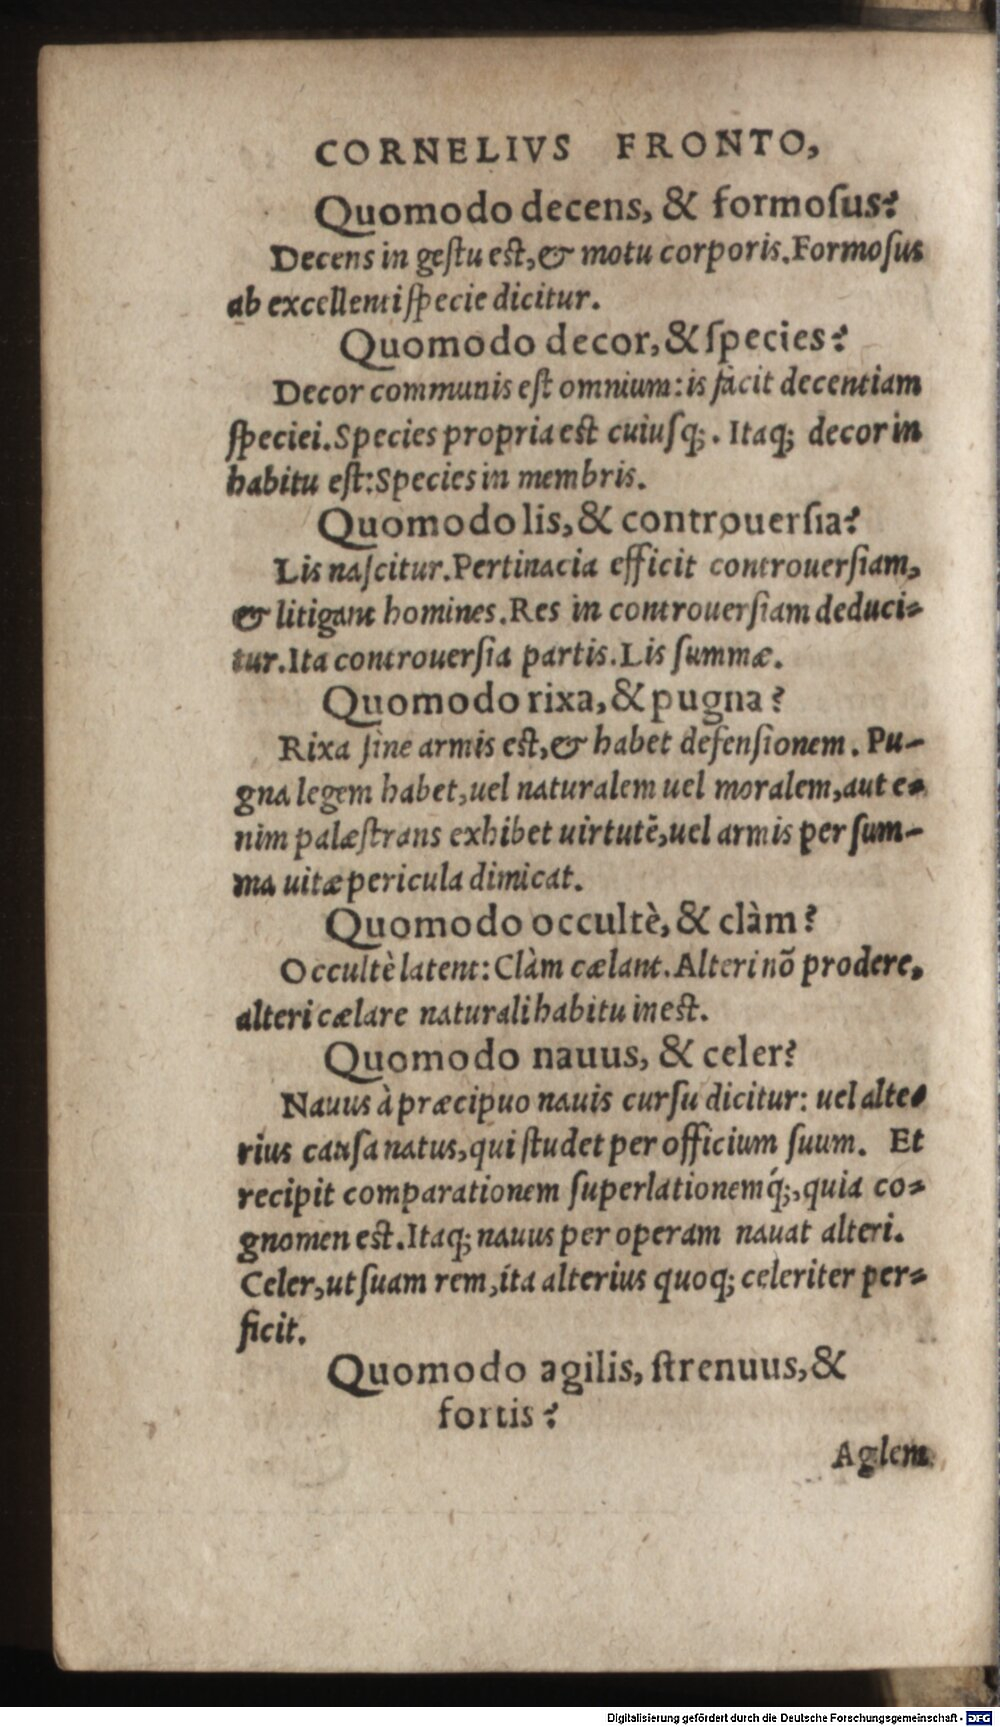 CORNELIVS FRONTO,
Quomodo decens, & formoſus?
Decens in geſtu eſt, & motu corporis. Formoſus
ab excellenti ſpecie dicitur.
Quomodo decor, & ſpecies?
Decor communis eſt omnium: is facit decentiam
ſpeciei. Species propria eſt cuiuſq;. Itaq; decor in
habitu eſt: Species in membris.
Quomodo lis, & controuerſia?
Lis naſcitur. Pertinacia efficit controuerſiam,
& litigant homines. Res in controuerſiam deduci-
tur. Ita controuerſia partis. Lis ſummæ.
Quomodo rixa, & pugna?
Rixa ſine armis eſt, & habet defenſionem. Pu-
gna legem habet, uel naturalem uel moralem, aut e-
nim palæſtrans exhibet uirtutē, uel armis per ſum-
ma uitæ pericula dimicat.
Quomodo occultè, & clàm?
Occultè latent: Clàm cælant. Alteri nõ prodere,
alteri cælare naturali habitu ineſt.
Quomodo nauus, & celer?
Nauus à præcipuo nauis curſu dicitur: uel alte-
rius cauſa natus, qui ſtudet per officium ſuum. Et
recipit comparationem ſuperlationemq́;, quia co-
gnomen eſt. Itaq; nauus per operam nauat alteri.
Celer, ut ſuam rem, ita alterius quoq; celeriter per-
ficit.
Quomodo agilis, ſtrenuus, &
fortis?
Aglem
Digitalisierung gefördert durch die Deutsche Forschungsgemeinschaft - DFG